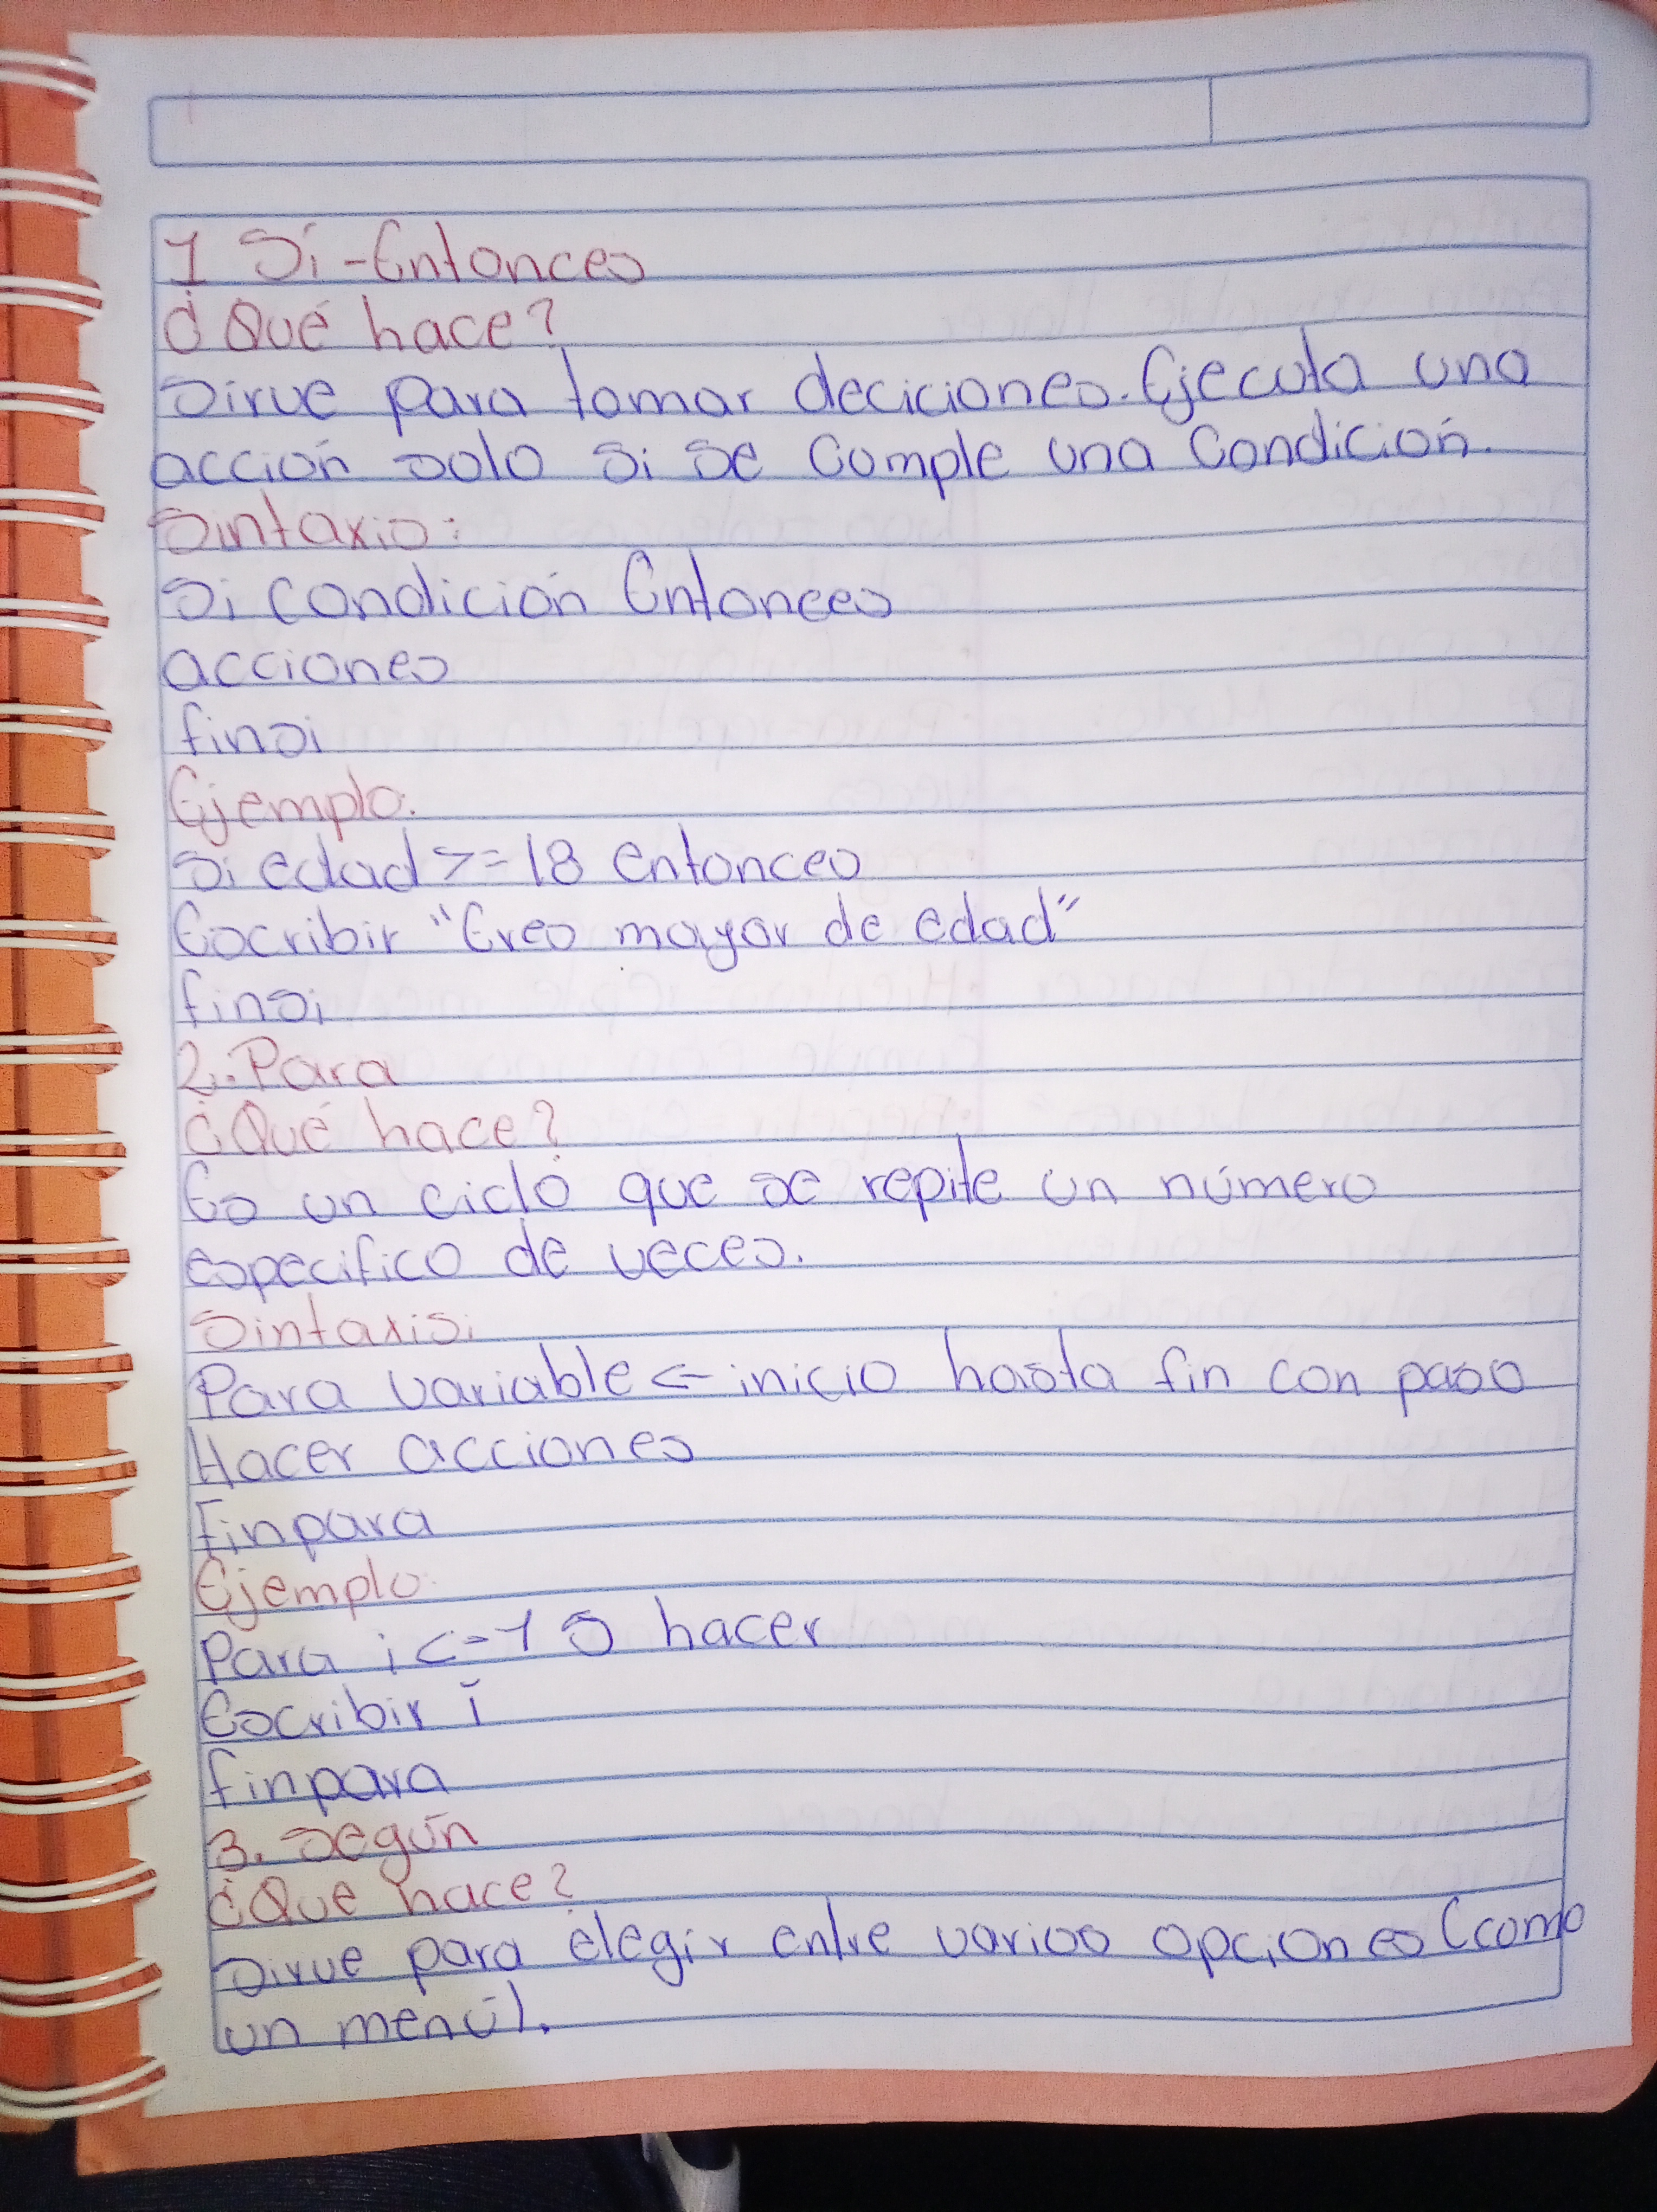 1 Si-Entonces
¿Qué hace?
Sirve para tomar deciciones. Ejecuta una
acción solo si se Cumple una Condición.
Sintaxis:
Si condición Entonces
acciones
finsi
Ejemplo:
Si edad >= 18 entonces
Escribir "Eres mayor de edad"
finsi
2. Para
¿Qué hace?
Es un ciclo que se repite un número
especifico de veces.
Sintaxis:
Para variable <- inicio hasta fin con paso
Hacer acciones
Finpara
Ejemplo:
Para i <- 1 5 hacer
Escribir i
finpara
3. Según
¿Que hace?
Sirve para elegir entre varios opciones (como
un menú).